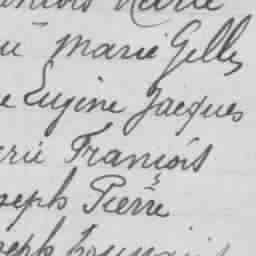 Marie
Marie Gilles
Eugène Jacques
rie François
seph Pierre
seph